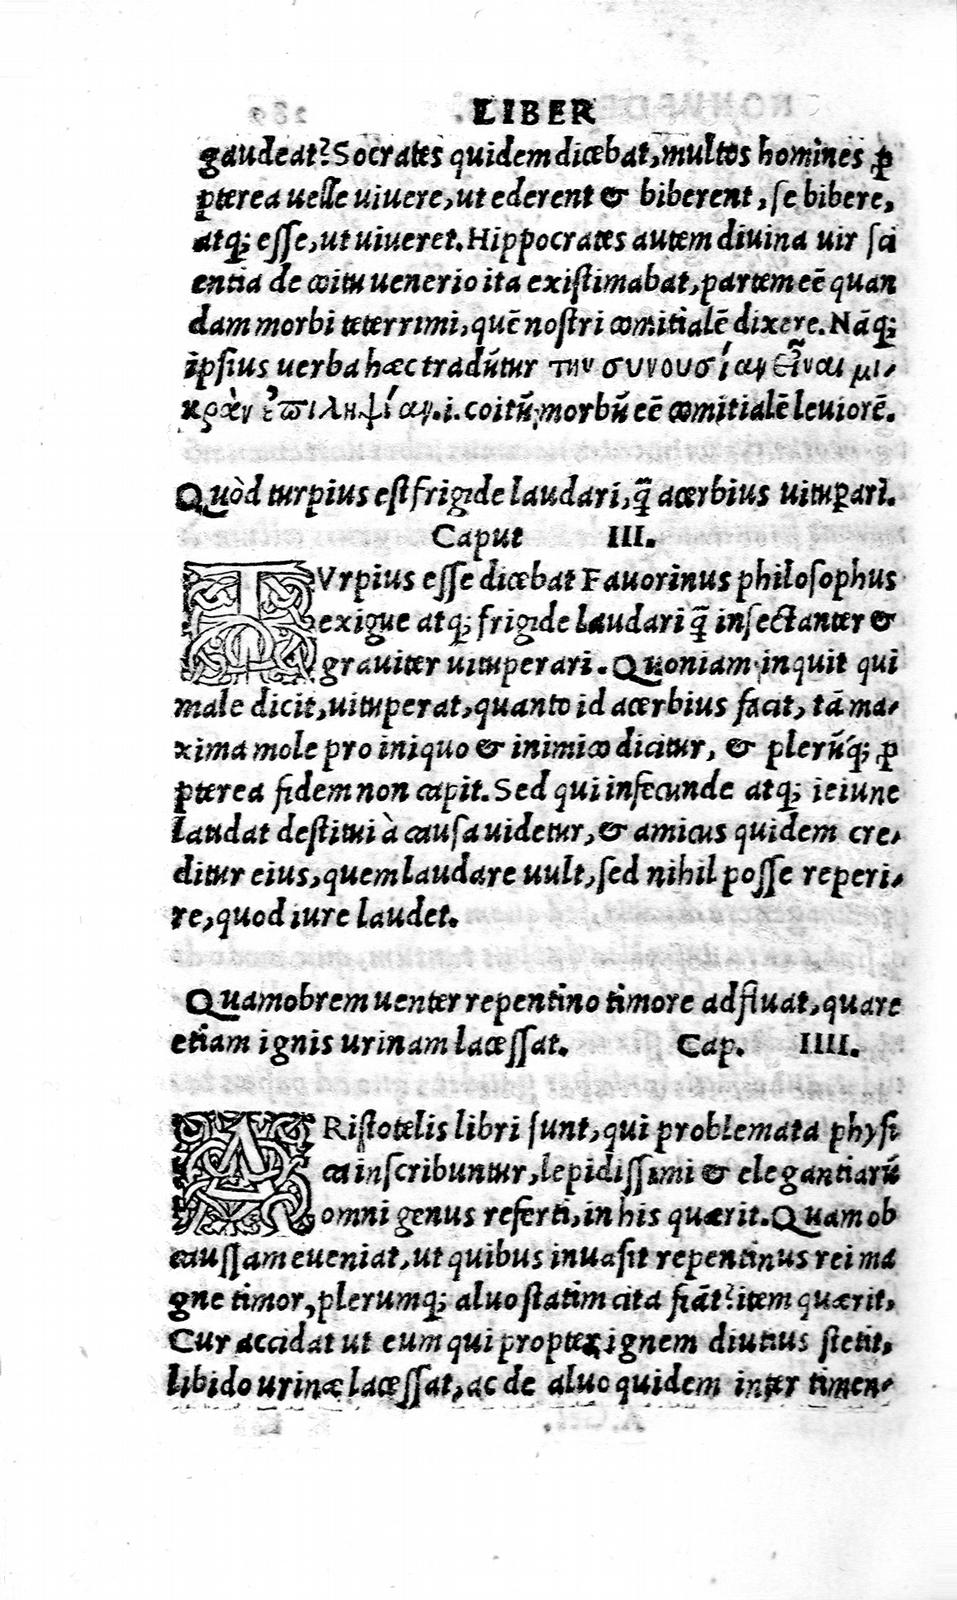 LIBER
gaudeat? Socrates quidem dicebat, multos homines ꝓ
pterea uelle uiuere, ut ederent & biberent, se bibere,
atq; esse, ut uiueret. Hippocrates autem diuina uir sci
entia de coitu uenerio ita existimabat, partem eē quan
dam morbi teterrimi, quē nostri comitialē dixere. Nāq;
ipsius uerba hæc tradūtur την συνουσίαν εἶναι μι-
κρὰν ἐπιληψίαν. i. coitū, morbū eē comitialē leuiorē.
Quòd turpius est frigide laudari, q̄ acerbius uituꝑari.
Caput III.
TVrpius esse dicebat Fauorinus philosophus
exigue atq; frigide laudari q̄ insectanter &
grauiter uituperari. Quoniam inquit qui
male dicit, uituperat, quanto id acerbius facit, tā ma-
xima mole pro iniquo & inimico dicitur, & plerūq; ꝓ
pterea fidem non capit. Sed qui infecunde atq; ieiune
laudat destitui à causa uidetur, & amicus quidem cre-
ditur eius, quem laudare uult, sed nihil posse reperi-
re, quod iure laudet.
Quamobrem uenter repentino timore adfluat, quare
etiam ignis urinam lacessat. Cap. IIII.
ARistotelis libri sunt, qui problemata physi
ca inscribuntur, lepidissimi & elegantiarū
omni genus referti, in his quærit. Quam ob
caussam eueniat, ut quibus inuasit repentinus rei ma
gne timor, plerumq; aluo statim cita fiāt? item quærit,
Cur accidat ut eum qui propter ignem diutius stetit,
libido urinæ lacessat, ac de aluo quidem inter timen-